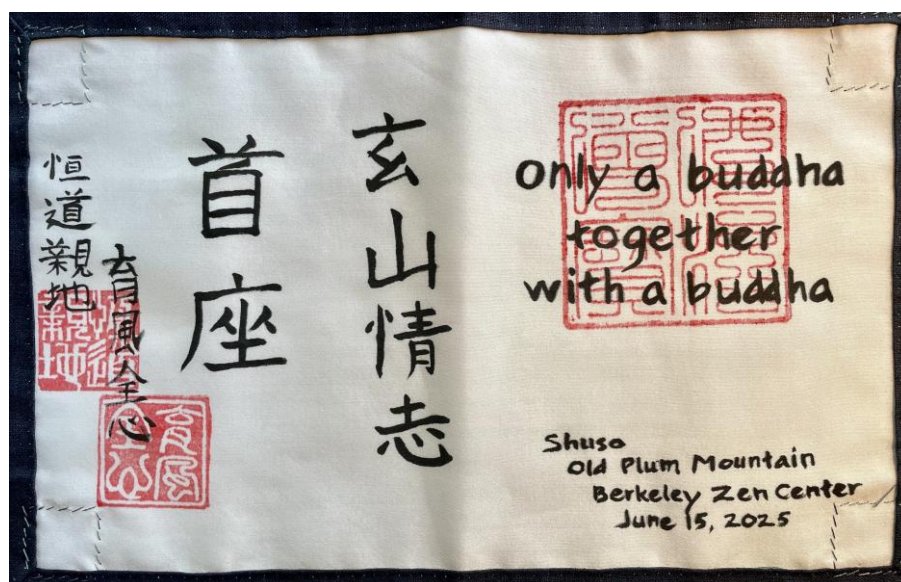 only a buddha
together
with a buddha
Shuso
Old Plum Mountain
Berkeley Zen Center
June 15, 2025
玄山情志
首座
育風全心
恒道親地
育風
全心